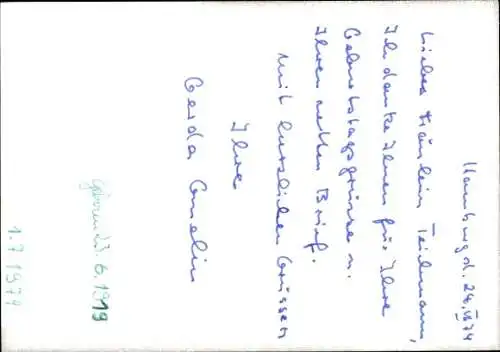 Hamburg d. 24.VI 74
Liebes Fräulein Teilmann,
Ich danke Ihnen für Ihre
Geburtstagsgrüsse u.
Ihren netten Brief.
Mit herzlichen Grüssen
Ihre
Gerda
geboren 23.6.1919
1.7.1974